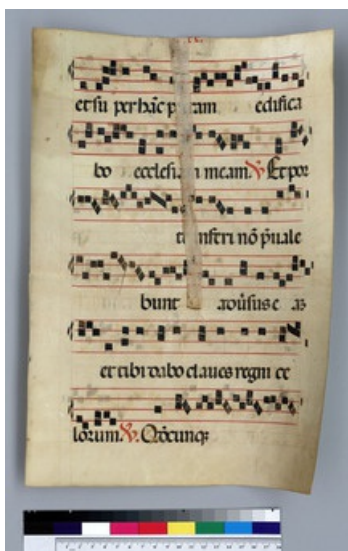 et su per hāc p am edifica
bo ecclesiam meam. ℣. Et por
inferi nō p̄uale
bunt aduſus e as
et tibi dabo claues regni ce
lorum. ℣. Q̄dcunq̄